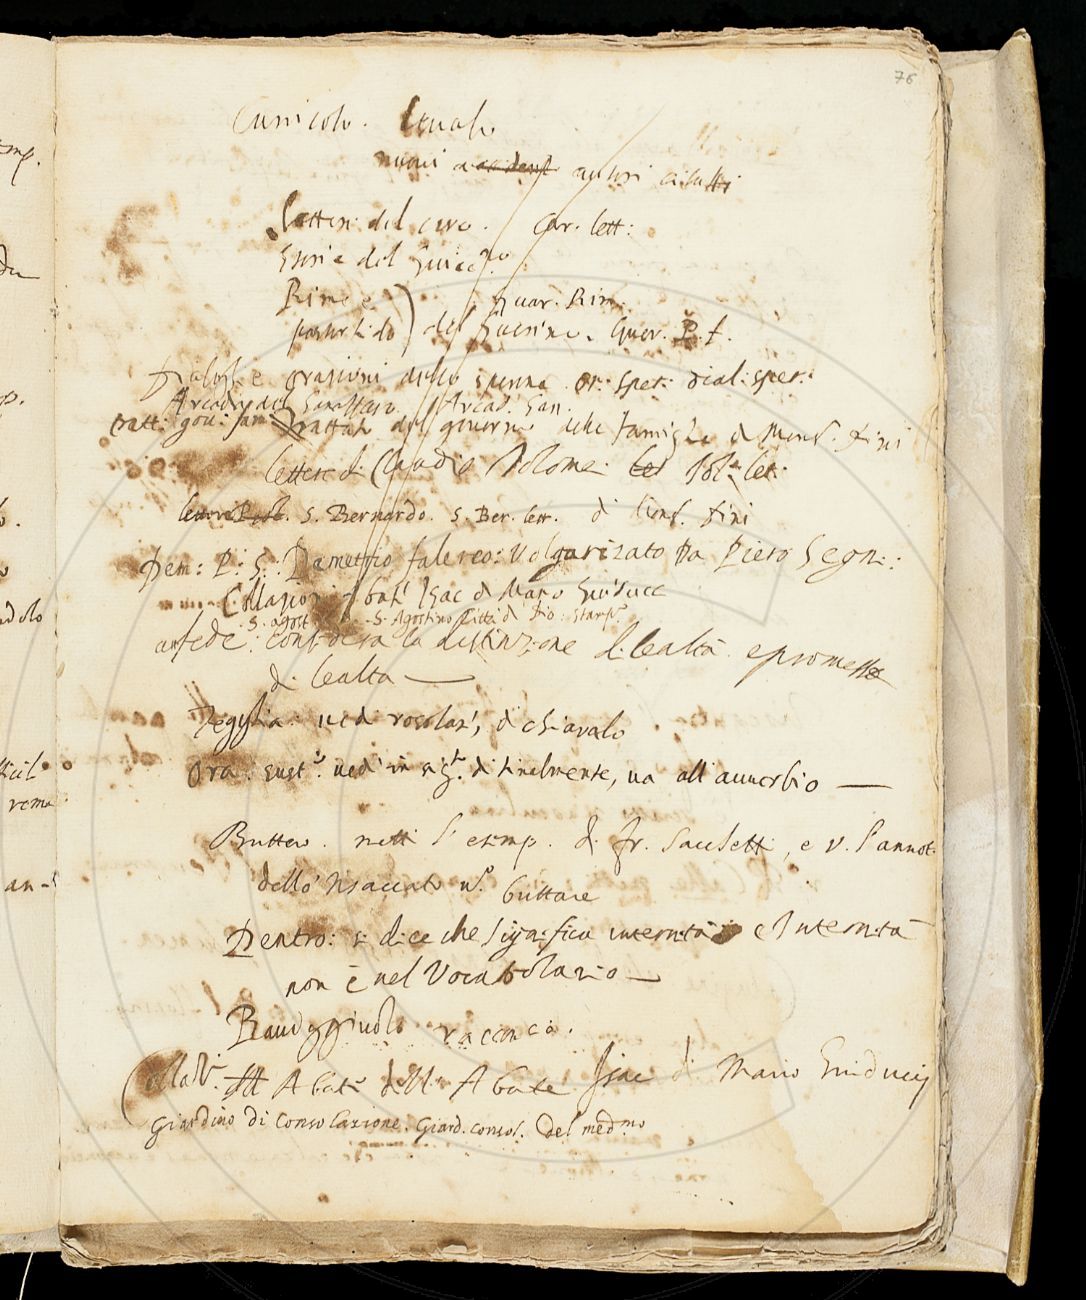 76
Cunicolo. leuato
nuovi a accident autori citati
lettere del caro. Car. lett:
Storie del Guicc.
Rime e Guar. Rim.
pastor fido del Guerino. Guer. P. f.
Dialoghi e orazioni dello sperone. or: sper: dial: sper:
Arcadia del Sanazzaro Arcad. San.
tratt: gou: fam: Trattato del governo delle famiglie di Mons. fini
lettere di Claudio Tolomei let Tol: let:
S. Bernardo. S. Ber. lett. di Mons. fini
Dem: P: S: Demettrio falereo: Volgarizato Da Piero Segni:
Collazioni Abate Isac di Mario Guiducc
S. agost S. Agostino Città di Dio. Stamp.
fede: considera la distinzione di lealtà e promesse
di lealta
Tegghia. vedi rosolar, di chiavalo
Ora. sust. vedi in sig. di finalmente, va all'avverbio
Buttero. metti l'esemp. di Fr. Sacchetti, e v. l'annot.
dello nsaccato buttare
Dentro: si dice che significa internità e Internità
non è nel Vocabolario
Raveggiuolo racconcio.
Collaz. Abate dell' Abate Isac di Mario Guiducij
Giardino di Consolazione. Giard. consol. Del med.mo